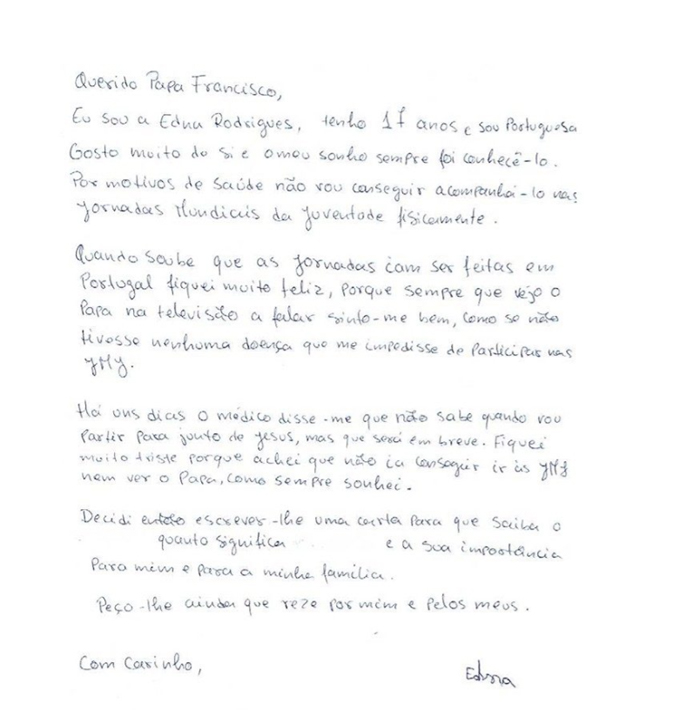 Querido Papa Francisco,
Eu sou a Edna Rodrigues, tenho 17 anos e sou Portuguesa
Gosto muito de si e o meu sonho sempre foi conhecê-lo.
Por motivos de saúde não vou conseguir acompanhá-lo nas
Jornadas Mundiais da Juventude fisicamente.
Quando soube que as Jornadas iam ser feitas em
Portugal fiquei muito feliz, porque sempre que vejo o
Papa na televisão a falar sinto-me bem, como se não
tivesse nenhuma doença que me impedisse de participar nas
JMJ.
Há uns dias o médico disse-me que não sabe quando vou
partir para junto de Jesus, mas que será em breve. Fiquei
muito triste porque achei que não ia conseguir ir às JMJ
nem ver o Papa, como sempre sonhei.
Decidi então escrever-lhe uma carta para que saiba o
quanto significa e a sua importância
para mim e para a minha família.
Peço-lhe ainda que reze por mim e pelos meus.
Com carinho,
Edna